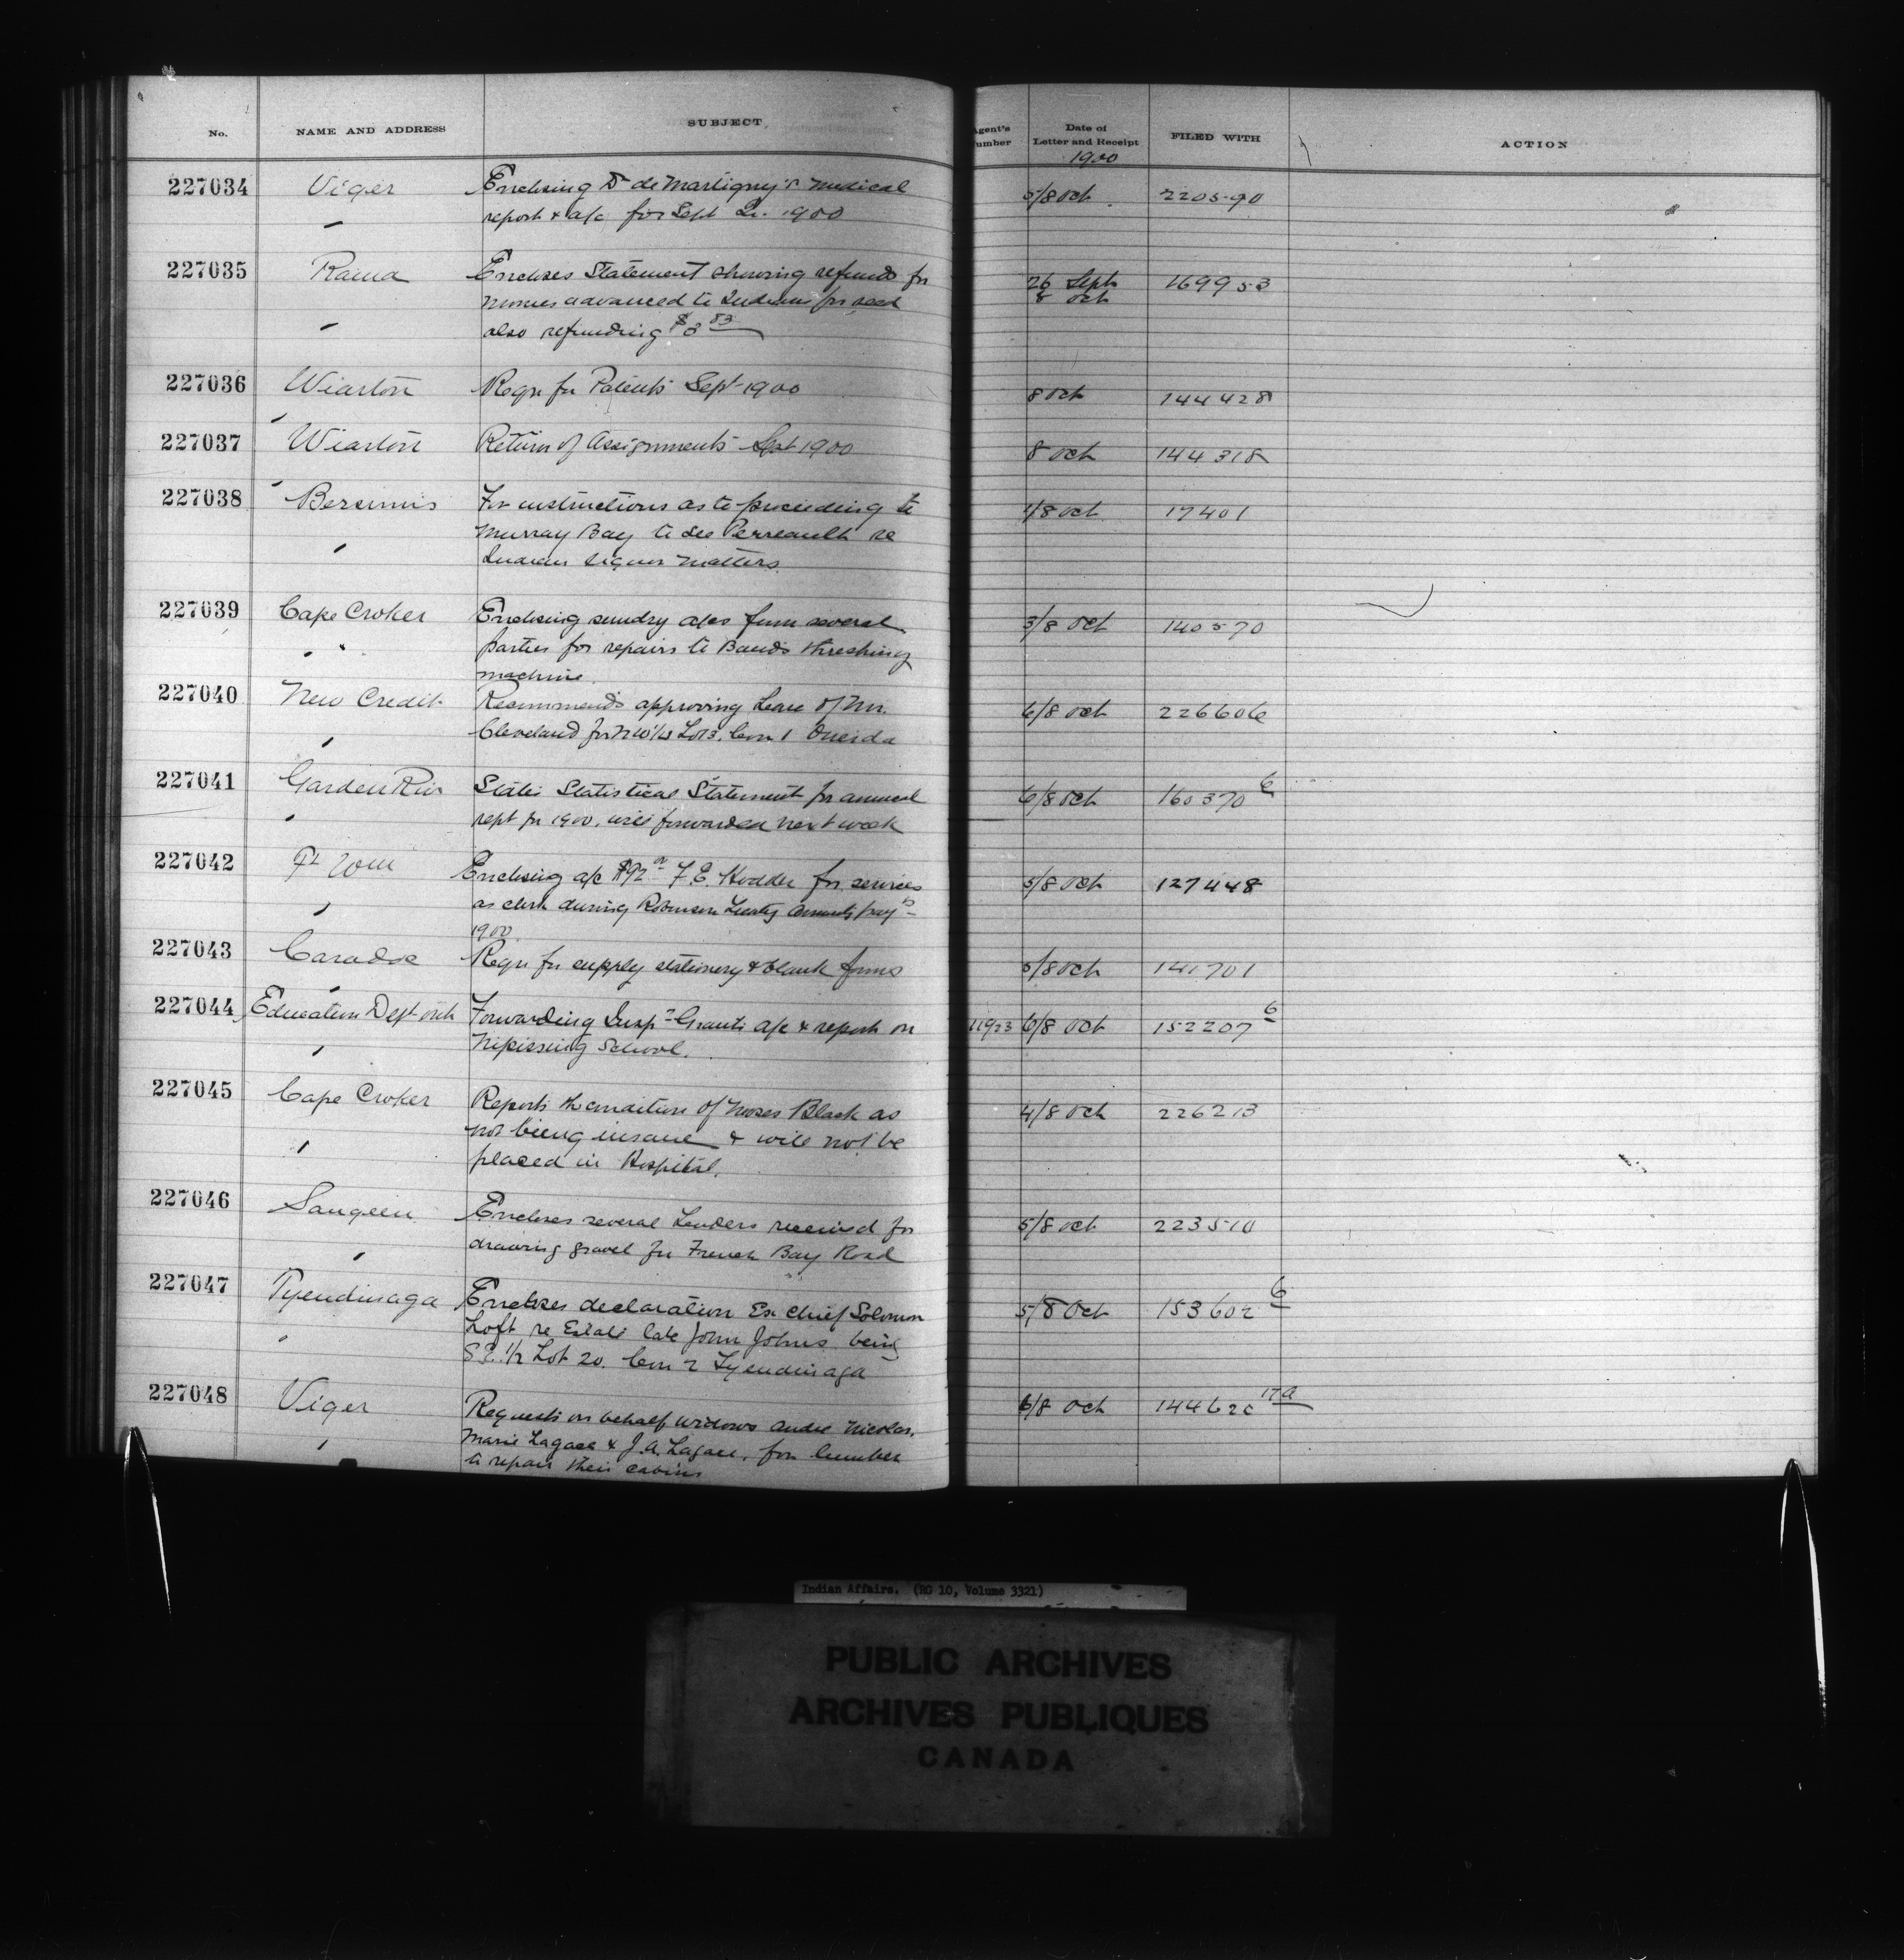 No. NAME AND ADDRESS SUBJECT. Agent's Number Date of Letter and Receipt FILED WITH ACTION
1900
227034 Viger Enclosing Dr de Martigny's medical 5/8 Oct. 220590
" report & a/c for Sept Qr. 1900
227035 Rama Encloses Statement showing refunds for 26 Sept 169953
monies advanced to Indians for seed 8 Oct
" also refunding $3 83
227036 Wiarton Requ for Patents Sept 1900 8 Oct 144428
227037 Wiarton Return of Assignments Sept 1900 8 Oct 144318
227038 Bersimis For instructions as to proceeding to 1/8 Oct 17401
Murray Bay to see Perreault re
" Indian liquor matters.
227039 Cape Croker Enclosing sundry a/cs from several 3/8 Oct 140570
" " parties for repairs to Band's threshing
machine.
227040 New Credit Recommends approving Lease of Mr. 6/8 Oct 226606
" Cleveland for NW 1/3 Lot 3. Con 1 Oneida
227041 Garden Riv States Statistical Statement for annual 6/8 Oct 160370 6
" rept for 1900. will forwarded next week
227042 Ft Wm Enclosing a/c $92 00 F.E. Hodder for services 5/8 Oct 127448
" as clerk during Robinson Treaty Annuity pay ts
1900.
227043 Caradoc Requ for supply stationery & blank forms 5/8 Oct 141701
227044 Education Dept Ont Forwarding Insp r Grants a/c & report on 11923 6/8 Oct 152207 6
" Nipissing School.
227045 Cape Croker Reports the condition of Moses Black as 4/8 Oct 226213
not being insane & will not be
" placed in Hospital.
227046 Saugeen Encloses several Tenders received for 5/8 Oct 223510
" drawing gravel for French Bay Road
227047 Tyendinaga Encloses declaration Ex Chief Solomon 5/8 Oct 153602 6
" Loft re Estate late John Johns being
S.E. 1/2 Lot 20. Con 2 Tyendinaga
227048 Viger Requests on behalf widows Andre Nicolas. 6/8 Oct 144620 17a
" Marie Lagace & J.A. Lagace, for lumber
to repair their cabins
Indian Affairs. (RG 10, Volume 3321)
PUBLIC ARCHIVES
ARCHIVES PUBLIQUES
CANADA